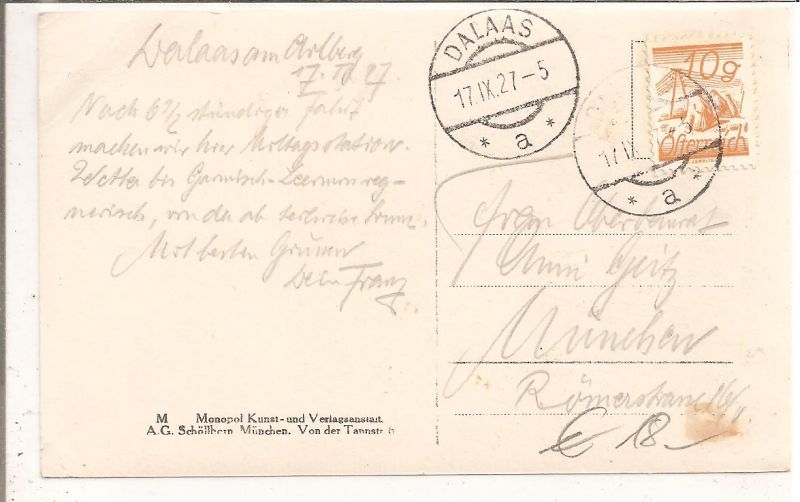 Dalaas am Arlberg
17. IX 27
Nach 6 1/2 stündiger Fahrt
machen wir hier Mittagsstation.
Wetter bis Garmisch-Lermoos reg-
nerisch, von da ab teilweise
Mit besten Grüssen
Dein Franz
DALAAS
17.IX.27-5
* a *
17.IX
* a *
10g
Österreich
Frau Oberbaurat
Anni
München
Römerstrasse
€ 18-
M Monopol Kunst- und Verlagsanstalt
A.G. Schöllhorn München. Von der Tannstr 6